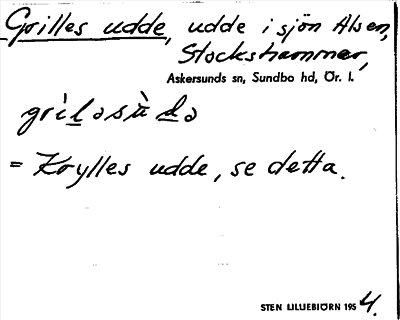 Grilles udde, udde i sjön Alsen,
Stockshammar,
Askersunds sn, Sundbo hd, Ör. l.
grìləsùdə
= Krylles udde, se detta.
STEN LILLIEBJÖRN 1954.